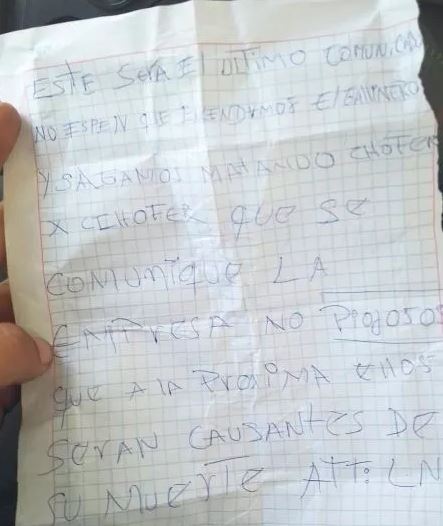 ESTE SERA El ULTIMO COMUNICADO
NO ESPEN QUE EL
Y SAGAMOS MATANDO CHOFER
X CHOFER QUE SE
COMUNIQUE LA
EMPRESA NO PIOJOSOS
QUE A LA PROXIMA ELLOS
SERAN CAUSANTES DE
SU MUERTE ATT: LN